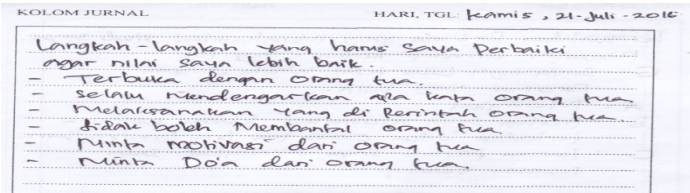 KOLOM JURNAL HARI, TGL: Kamis, 21-Juli-2016
Langkah-langkah yang harus saya Perbaiki
agar nilai saya lebih baik.
- Terbuka dengan orang tua.
- selalu mendengarkan apa kata orang tua
- Melaksanakan yang di Perintah orang tua
- tidak boleh Membantal orang tua
- Minta motivasi dari orang tua
- Minta Do'a dari orang tua.